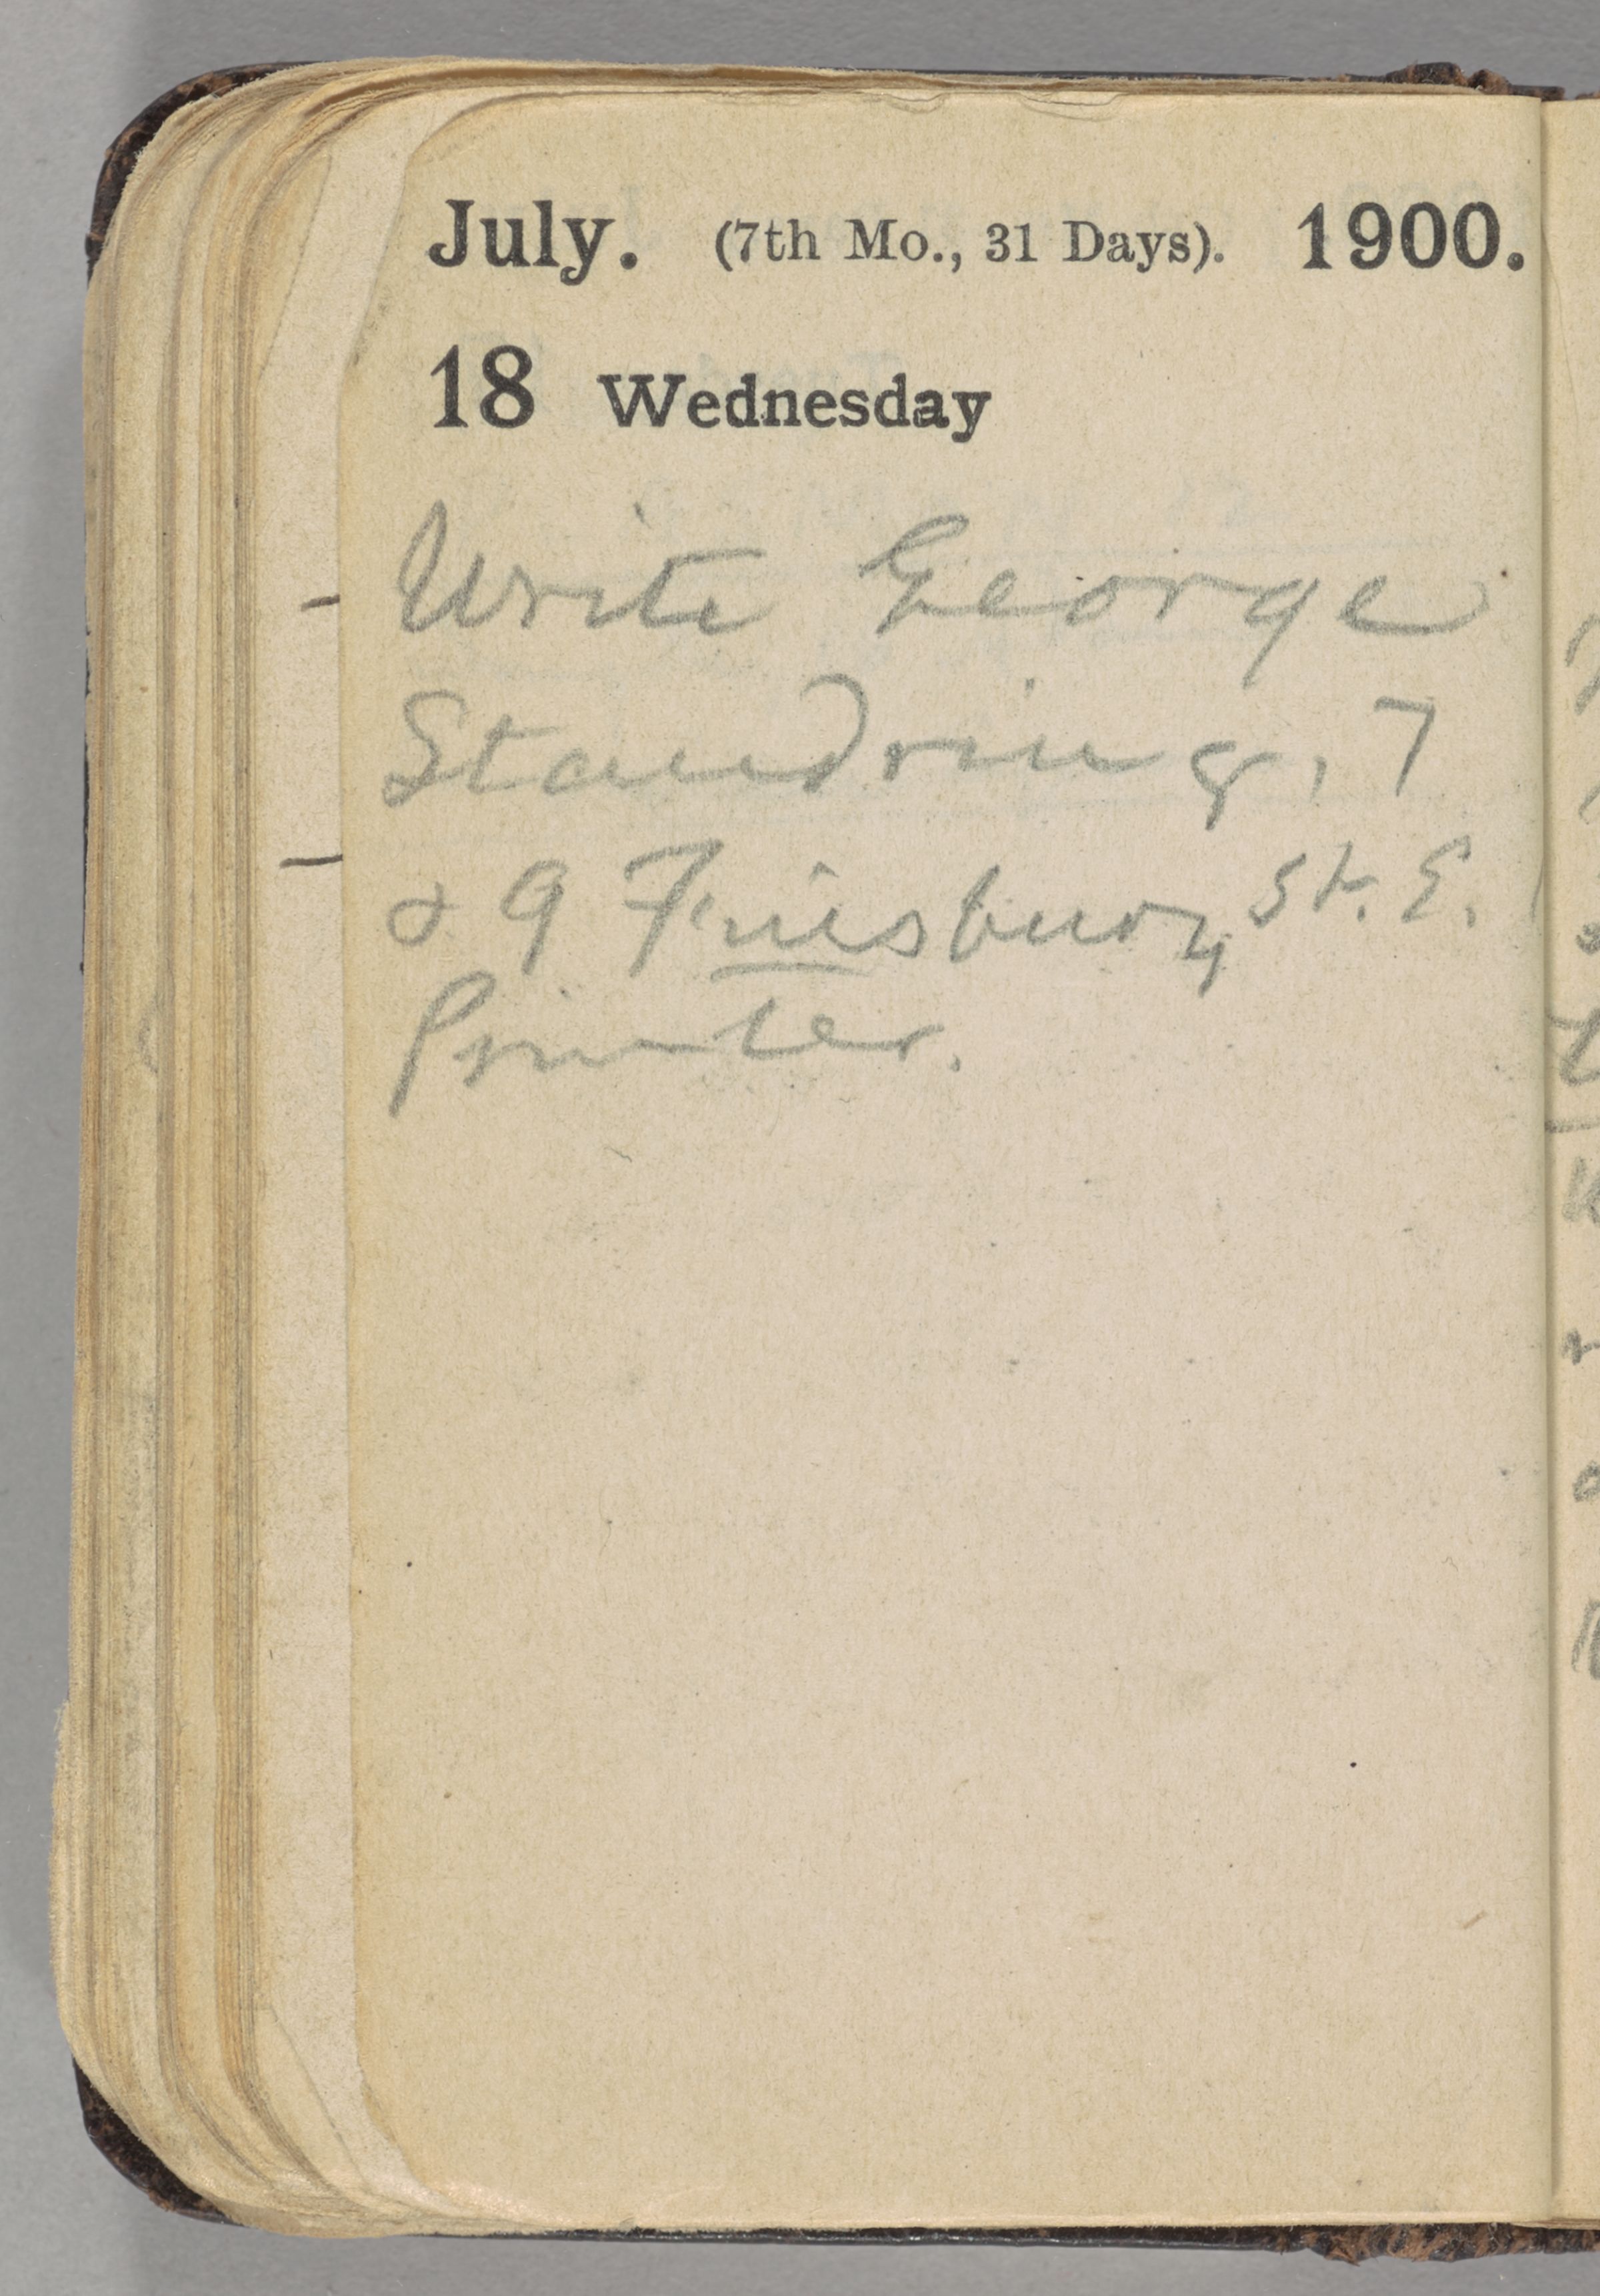 July. (7th Mo., 31 Days). 1900.
18 Wednesday
Write George
Standring, 7
& 9 Finsbury St. E.
Printer.